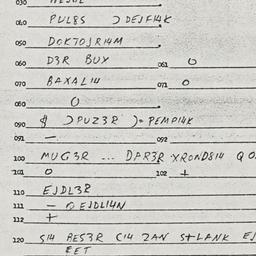 030
040 PUL8S Ɔ DEJFI4K
050 DOKTOJRI4M
060 D3R BUX 061 O
070 BAXALI4 071 O
080 O
090 ꓤ )PUZ3R )= PEMPI4K
091 — 092
100 MUG3R ... DAR3R XRONDSI4 Q O
101 O 102 +
110 EJDL38
111 — O EJDLI4N
112 +
120 SI4 BES3R CI4 ZAN S+LANK EJ
EET